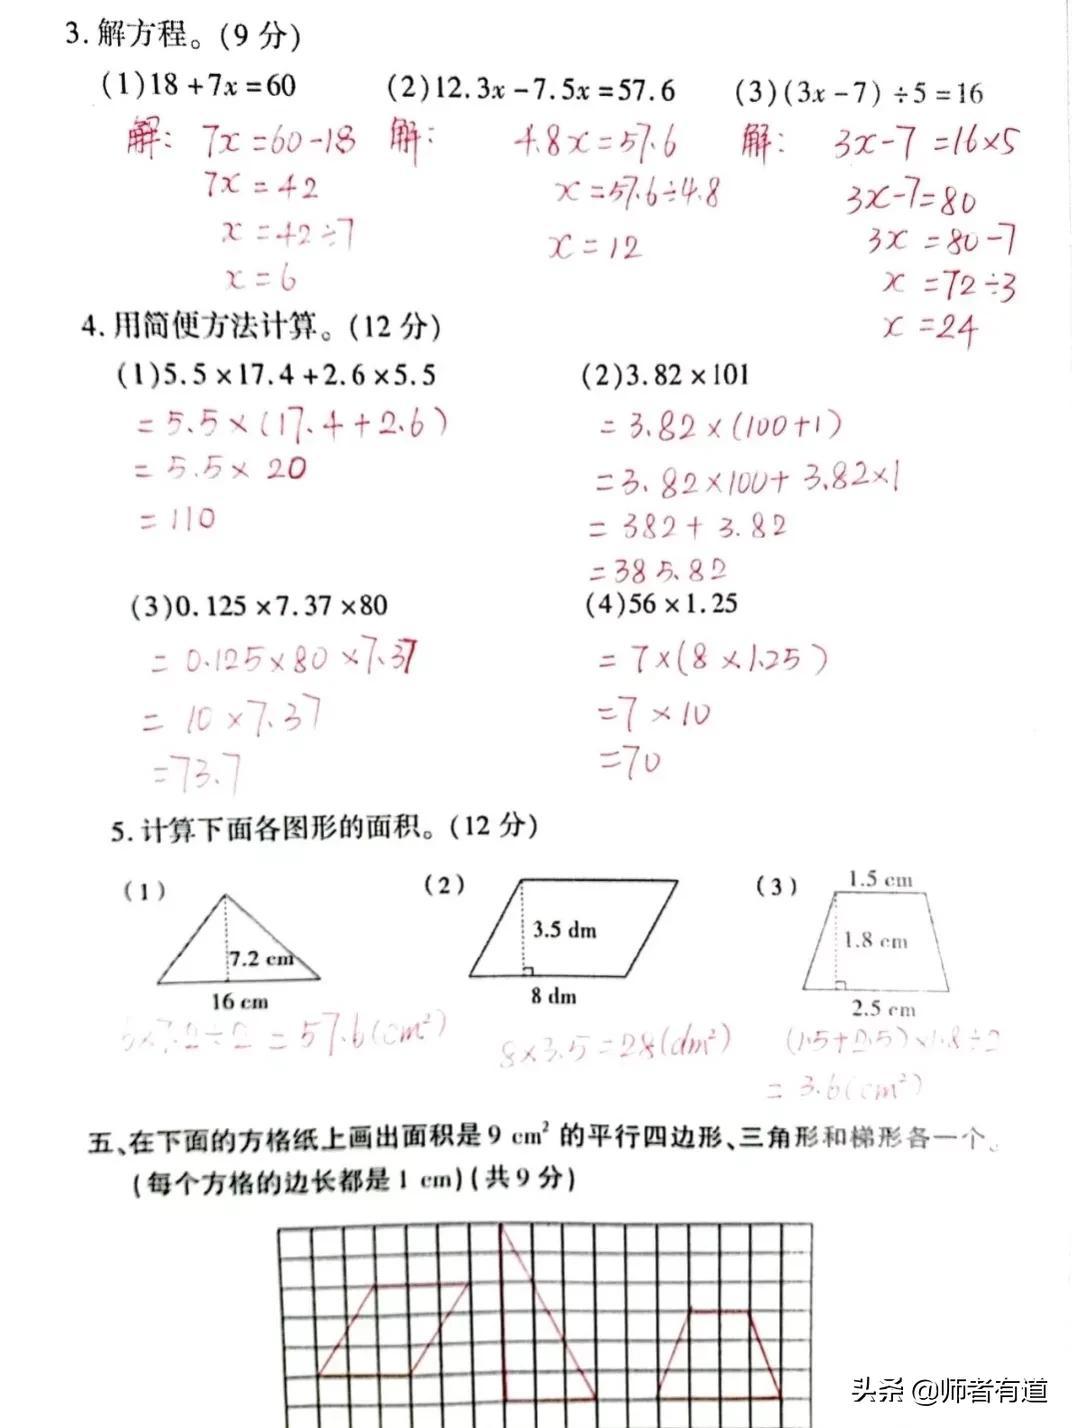 3.解方程。(9分)
(1)18+7x=60 (2)12.3x-7.5x=57.6 (3)(3x-7)÷5=16
解: 7x=60-18 解: 4.8x=57.6 解: 3x-7=16×5
7x=42 x=57.6÷4.8 3x-7=80
x=42÷7 x=12 3x=80-7
x=6 x=72÷3
x=24
4.用简便方法计算。(12分)
(1)5.5×17.4+2.6×5.5 (2)3.82×101
=5.5×(17.4+2.6) =3.82×(100+1)
=5.5×20 =3.82×100+3.82×1
=110 =382+3.82
=385.82
(3)0.125×7.37×80 (4)56×1.25
=0.125×80×7.37 =7×(8×1.25)
=10×7.37 =7×10
=73.7 =70
5.计算下面各图形的面积。(12分)
(1) (2) (3) 1.5 cm
7.2 cm 3.5 dm 1.8 cm
16 cm 8 dm 2.5 cm
6×7.2÷2=57.6(cm²) 8×3.5=28(dm²) (1.5+2.5)×1.8÷2
=3.6(cm²)
五、在下面的方格纸上画出面积是9 cm²的平行四边形、三角形和梯形各一个。
(每个方格的边长都是1 cm)(共9分)
头条 @师者有道